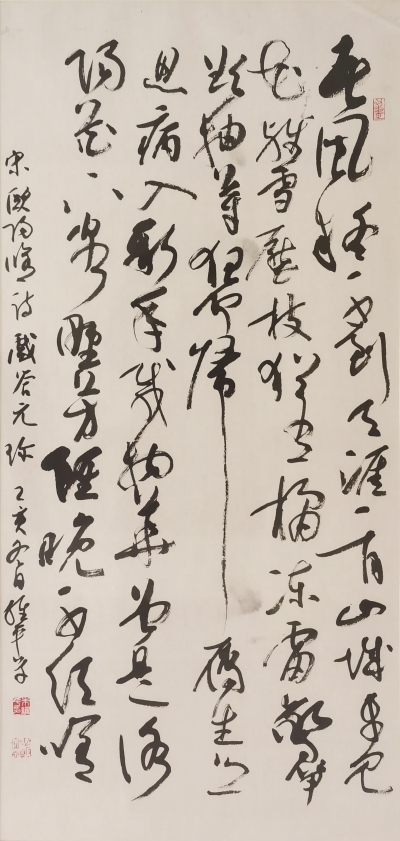 春風疑不到天涯二月山城未見
花殘雪壓枝猶有橘凍雷驚筍
欲抽芽夜聞歸雁生鄉
思病入新年感物華曾是洛
陽花下客野芳雖晚不須嗟
宋歐陽修詩戲答元珍